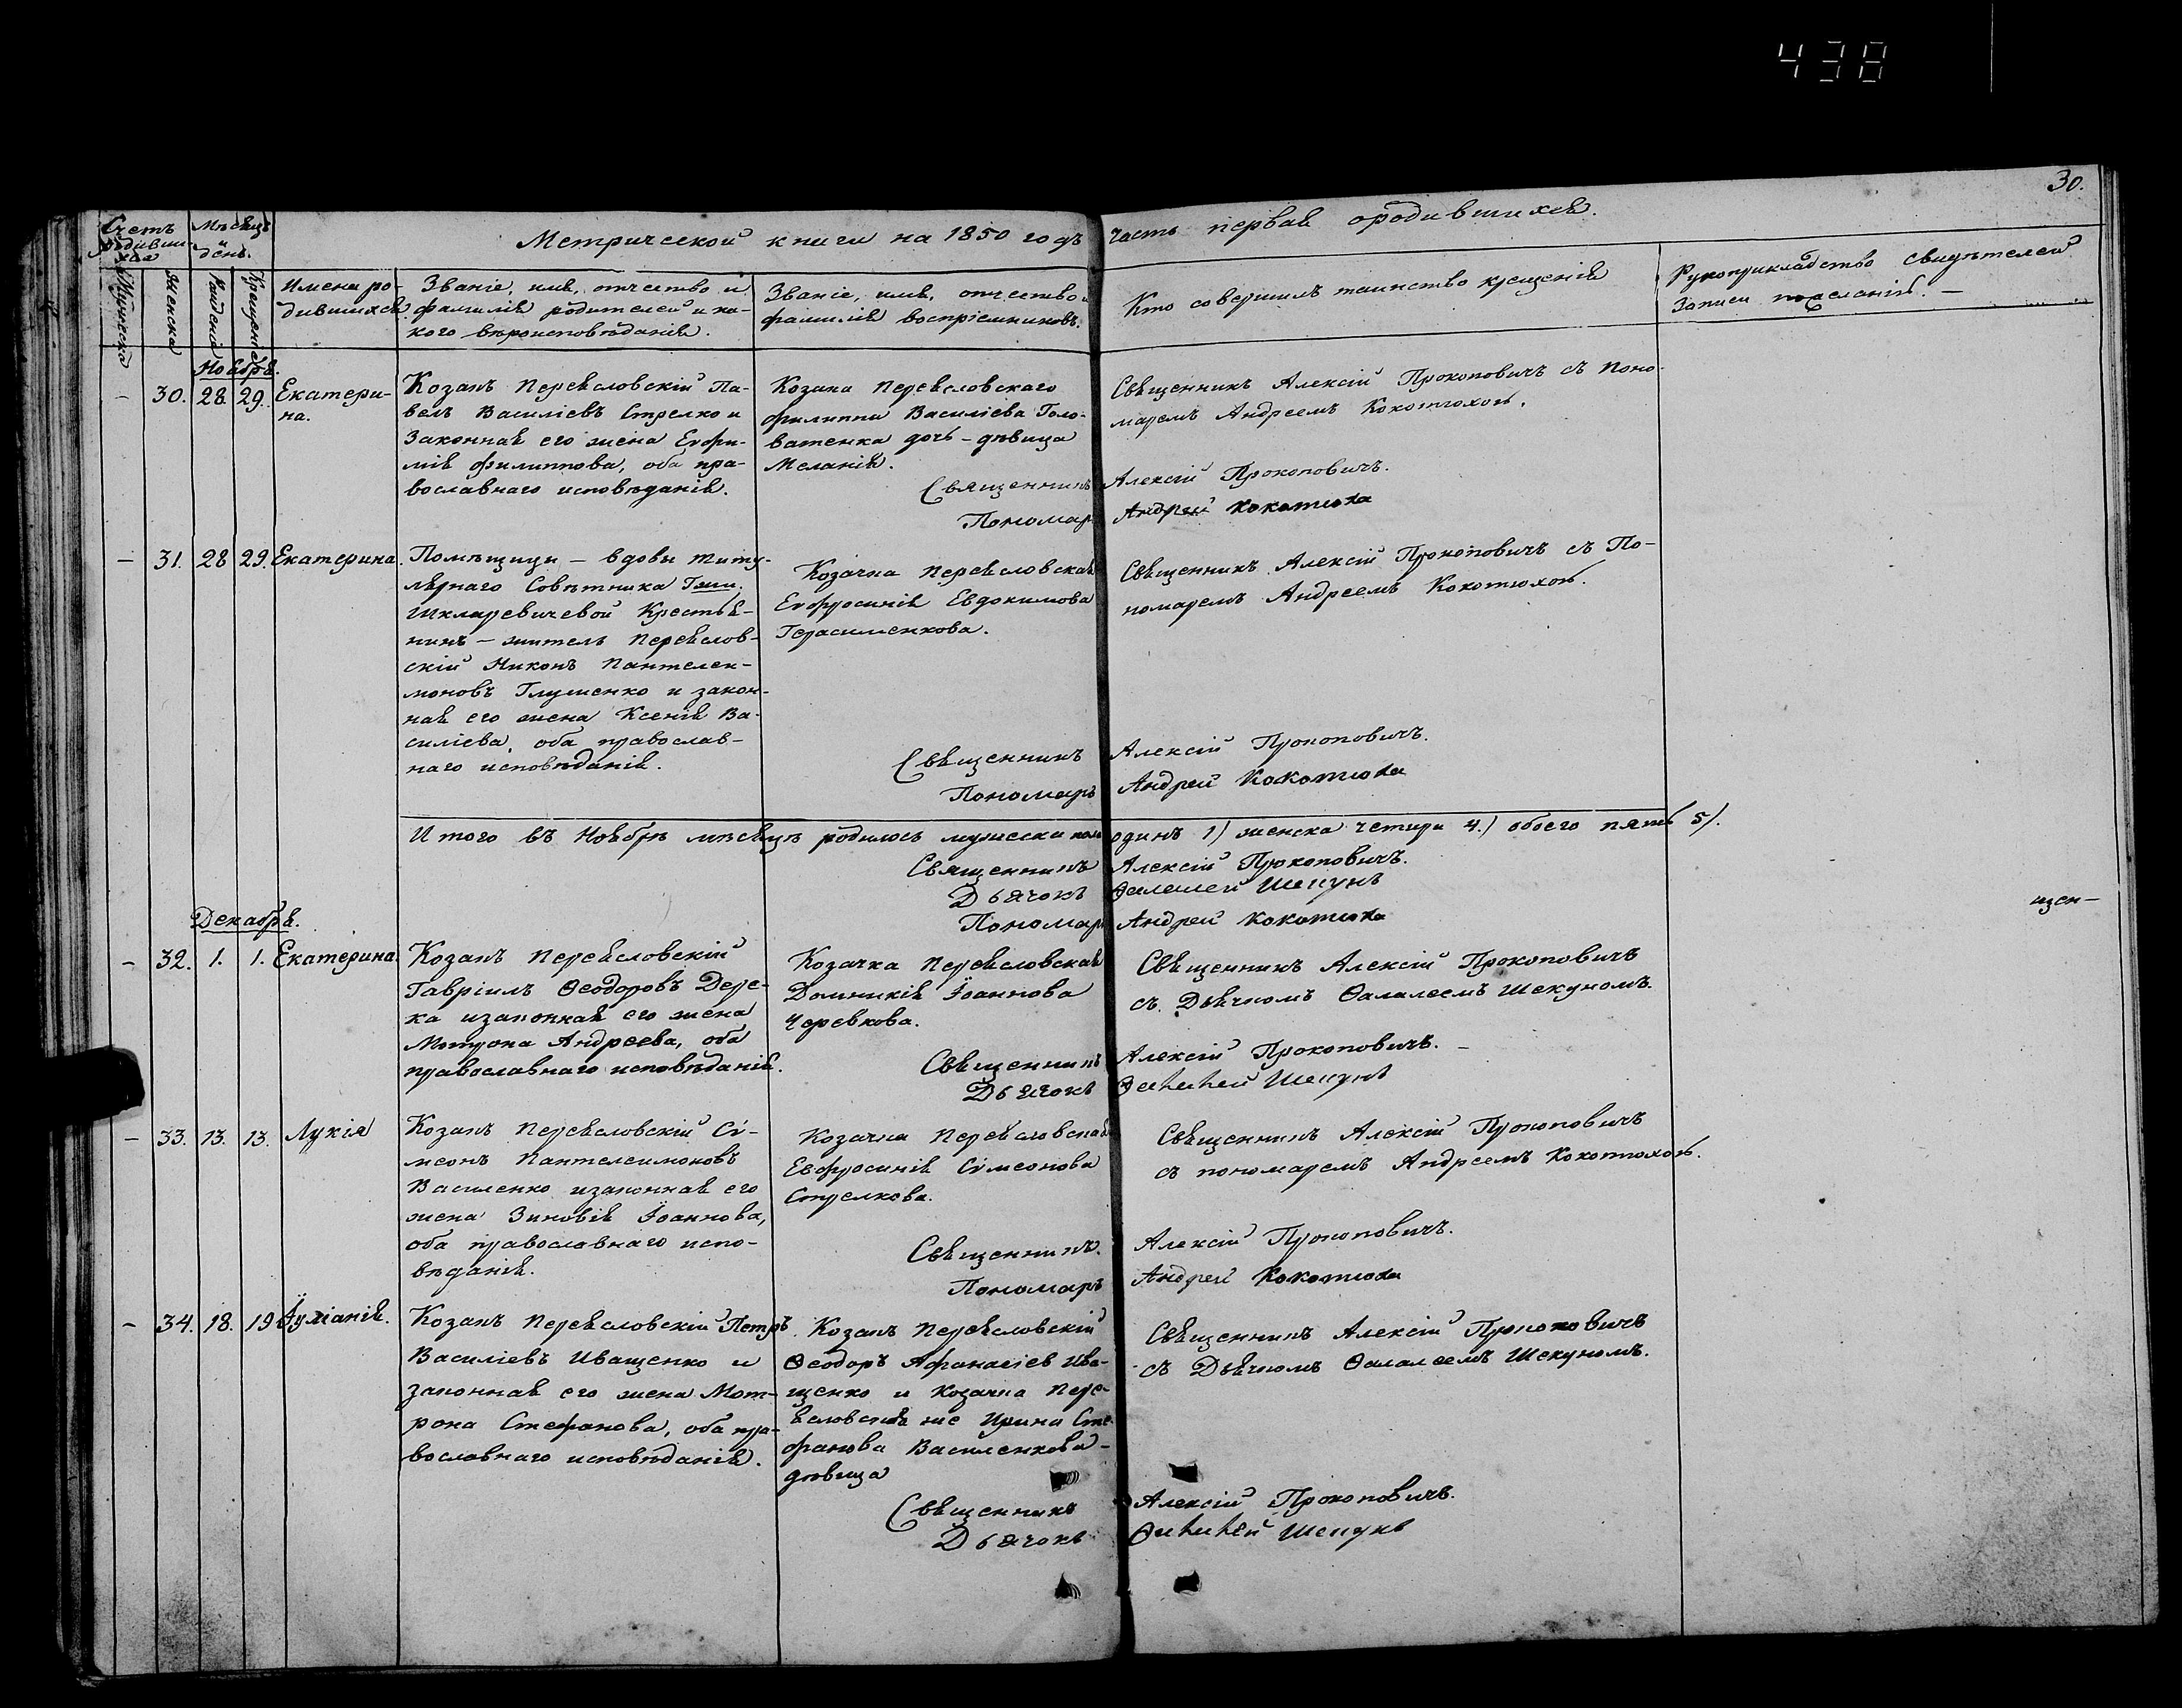 438
30.
Метрической книги на 1850 годъ часть первая о родившихся.
Счетъ
родивши-
хся
Мѣсяцъ
и
день.
Мужеска
Женска
Рожденія
Крещенія
Имена ро-
дившихся.
Званіе, имя, отчество и
фамилія родителей и ка-
кого вѣроисповѣданія.
Званіе, имя, отчество и
фамилія воспріемниковъ.
Кто совершилъ таинство крещенія
Рукоприкладство свидѣтелей
записи по желанію. —
Ноябрь.
- 30. 28. 29. Екатери-
на.
Козакъ Переясловскій Па-
велъ Василіевъ Стрелко и
Законная его жена Евфи-
мія Филиппова, оба пра-
вославнаго исповѣданія.
Козака Переясловскаго
Филиппа Василіева Голо-
ватенка дочь - дѣвица
Меланія.
Священникъ Алексій Прокоповичъ съ Поно-
маремъ Андреемъ Кокотюхою.
Священникъ Алексій Прокоповичъ.
Пономарь Андрей Кокотюха
- 31. 28 29. Екатерина.
Помѣщици - вдовы титу-
лярнаго Совѣтника
Шкляревичевой Крестья-
нинъ - житель Переяслов-
скій Никонъ Пантелеи-
моновъ Глущенко и закон-
ная его жена Ксенія Ва-
силіева, оба православ-
наго исповѣданія.
Козачка Переясловская
Евфросинія Евдокимова
Герасименкова.
Священникъ Алексій Прокоповичъ съ По-
номаремъ Андреемъ Кокотюхою.
Священникъ Алексій Прокоповичъ.
Пономарь Андрей Кокотюха
Итого въ Ноябрѣ мѣсяцѣ родилось мужеска пола одинъ 1) женска четири 4.) обоего пять 5).
Священникъ Алексій Прокоповичъ.
Дьячокъ Ѳалалей Шекунъ
Пономарь Андрей Кокотюха
Декабрь.
- 32. 1. 1. Екатерина.
Козакъ Переясловскій
Гавріилъ Ѳеодоровъ Дере-
ка изаконная его жена
Мотрона Андреева, оба
православнаго исповѣданія.
Козачка Переясловская
Домникія Іоаннова
Черевкова.
Священникъ Алексій Прокоповичъ
съ Дьячкомъ Ѳалалеемъ Шекуномъ.
Священникъ Алексій Прокоповичъ. -
Дьячокъ Ѳалалей Шекунъ
- 33. 13. 13. Лукія
Козакъ Переясловскій Сѵ-
меонъ Пантелеимоновъ
Василенко изаконная его
жена Зиновія Іоаннова,
оба православнаго испо-
вѣданія.
Козачка Переясловская
Евфросинія Сѵмеонова
Стрелкова.
Священникъ Алексій Прокоповичъ
съ пономаремъ Андреемъ Кокотюхою.
Священникъ. Алексій Прокоповичъ.
Пономарь Андрей Кокотюха
- 34. 18. 19 Іуліанія.
Козакъ Переясловскій Петръ
Василіевъ Иващенко и
законная его жена Мот-
рона Стефанова, оба пра-
вославнаго исповѣданія.
Козакъ Переясловскій
Ѳеодоръ Афанасіев Ива-
щенко и Козачка Пере-
ясловская же Ирина Сте-
фанова Василенкова -
дѣвица
Священникъ Алексій Прокоповичъ
съ Дьячкомъ Ѳалалеемъ Шекуномъ.
Священникъ Алексій Прокоповичъ.
Дьячокъ Ѳалалей Шекунъ
щен-